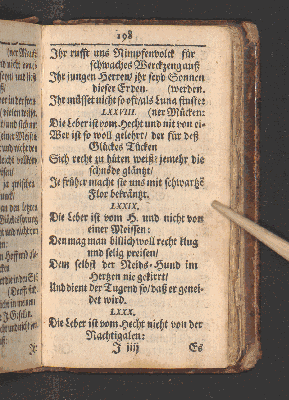 198.
Ihr rufft uns Nimpfenvolck für
schwaches Werckzeug auß
Ihr jungen Herren/ ihr seyd Sonnen
dieser Erden. (werden.
Ihr müsset nicht so oft/ als Luna finster
LXXVIII. (ner Mücken:
Die Leber ist vom Hecht und nit von ei-
Wer ist so woll gelehrt/ der für deß
Glückes Tücken
Sich recht zu hüten weiß? jemehr die
schnöde gläntzt/
Je früher macht sie uns mit schwartzē
Flor bekräntzt.
LXXIX.
Die Leber ist vom H. und nicht von
einer Meissen:
Den mag man billich woll recht klug
und selig preisen/
Dem selbst der Neids-Hund im
Hertzen nie gekirrt/
Und dient der Tugend so/ daß er genei-
det wird.
LXXX.
Die Leber ist vom Hecht nicht von der
Nachtigalen:
J iiij Es